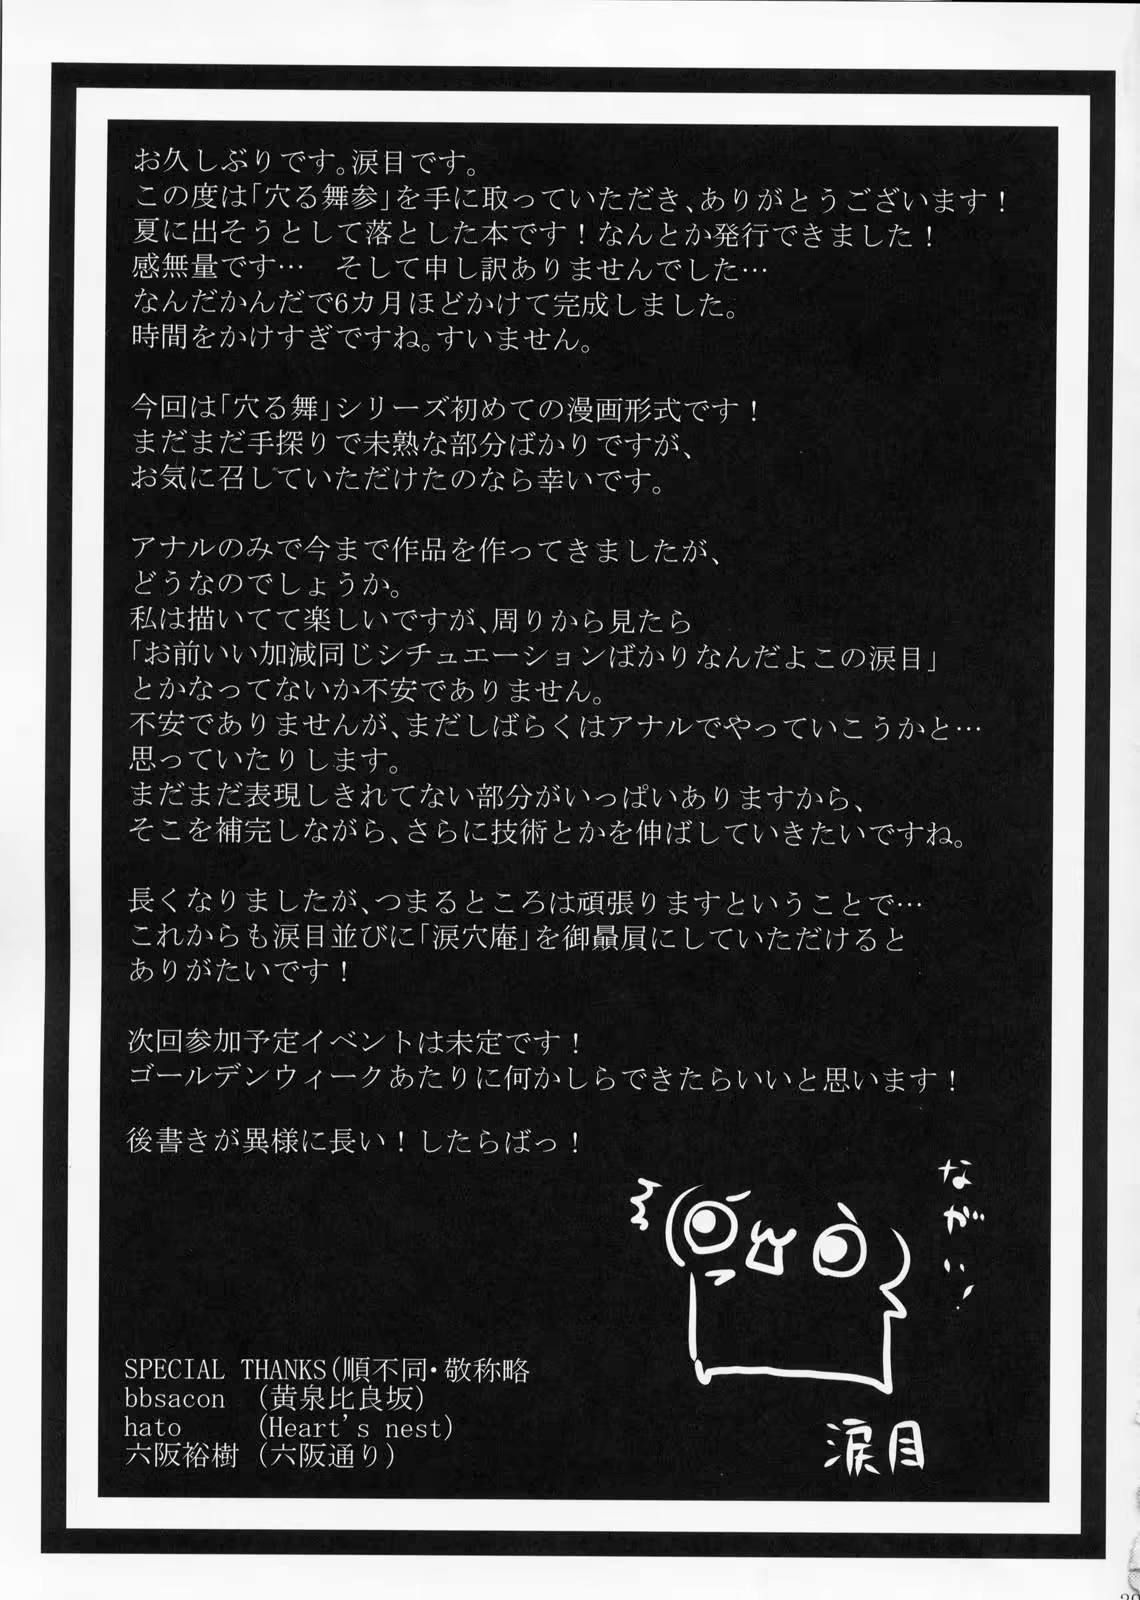 お久しぶりです。涙目です。
この度は「穴る舞参」を手に取っていただき、ありがとうございます！
夏に出そうとして落とした本です！なんとか発行できました！
感無量です…　そして申し訳ありませんでした…
なんだかんだで6カ月ほどかけて完成しました。
時間をかけすぎですね。すいません。
今回は「穴る舞」シリーズ初めての漫画形式です！
まだまだ手探りで未熟な部分ばかりですが、
お気に召していただけたのなら幸いです。
アナルのみで今まで作品を作ってきましたが、
どうなのでしょうか。
私は描いてて楽しいですが、周りから見たら
「お前いい加減同じシチュエーションばかりなんだよこの涙目」
とかなってないか不安でありません。
不安でありませんが、まだしばらくはアナルでやっていこうかと…
思っていたりします。
まだまだ表現しきれてない部分がいっぱいありますから、
そこを補完しながら、さらに技術とかを伸ばしていきたいですね。
長くなりましたが、つまるところは頑張りますということで…
これからも涙目並びに「涙穴庵」を御贔屓にしていただけると
ありがたいです！
次回参加予定イベントは未定です！
ゴールデンウィークあたりに何かしらできたらいいと思います！
後書きが異様に長い！したらばっ！
ながい!
SPECIAL THANKS(順不同・敬称略
bbsacon (黄泉比良坂)
hato (Heart's nest)
六阪裕樹 (六阪通り)
涙目